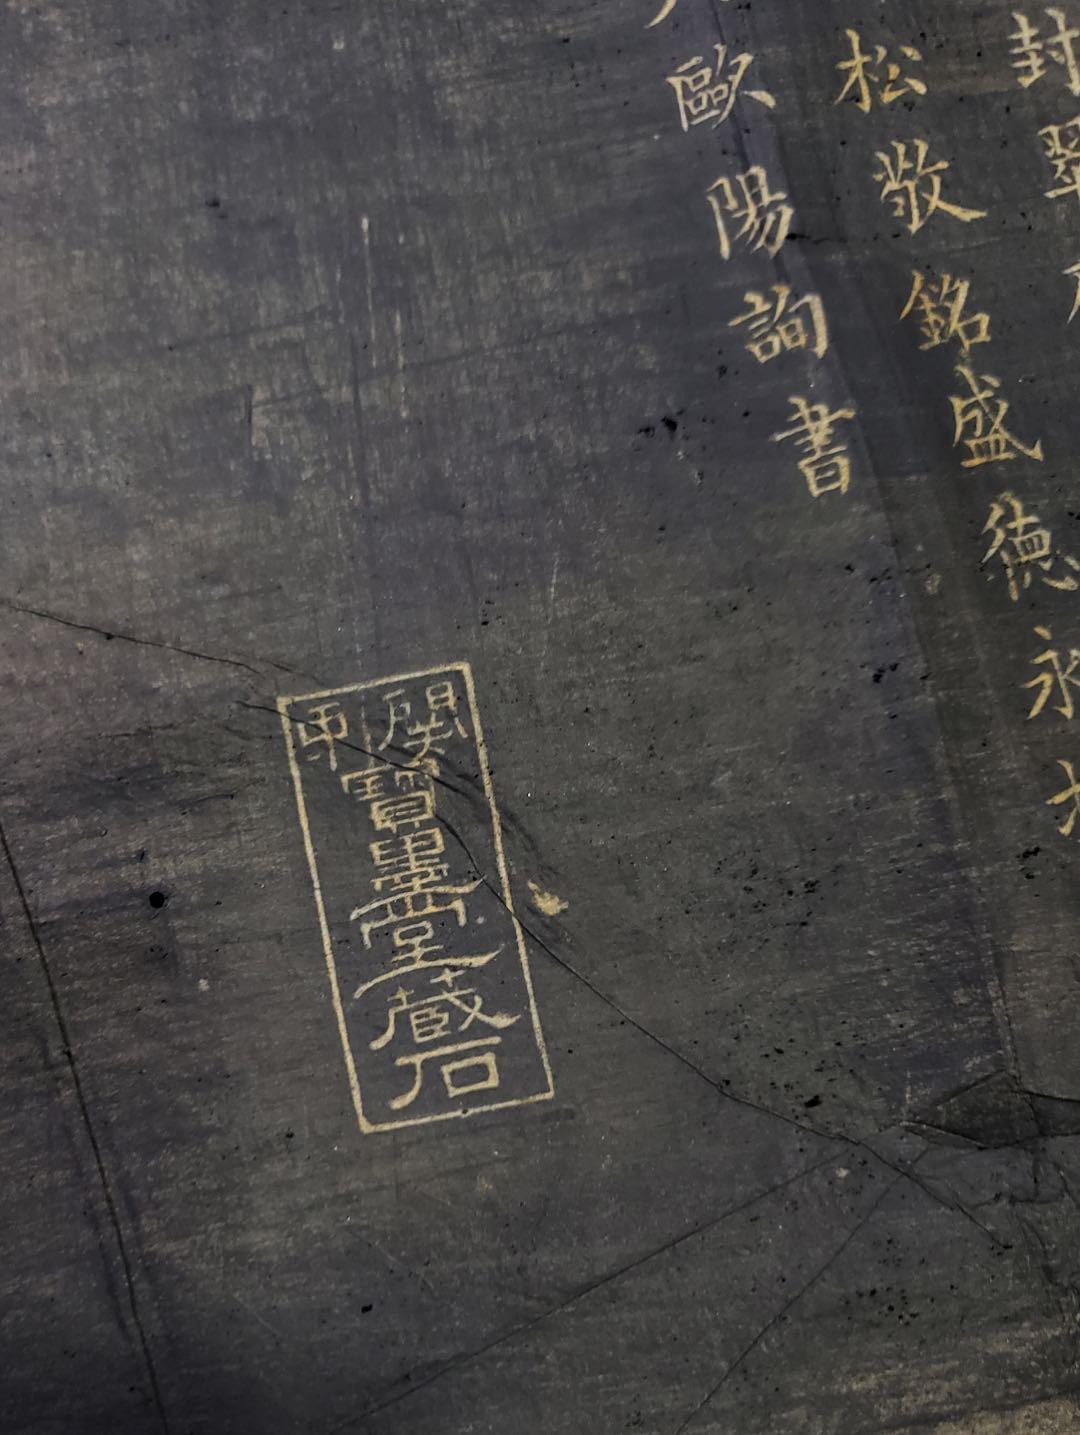 封翠
松敬銘盛德永
歐陽詢書
寶墨堂藏石